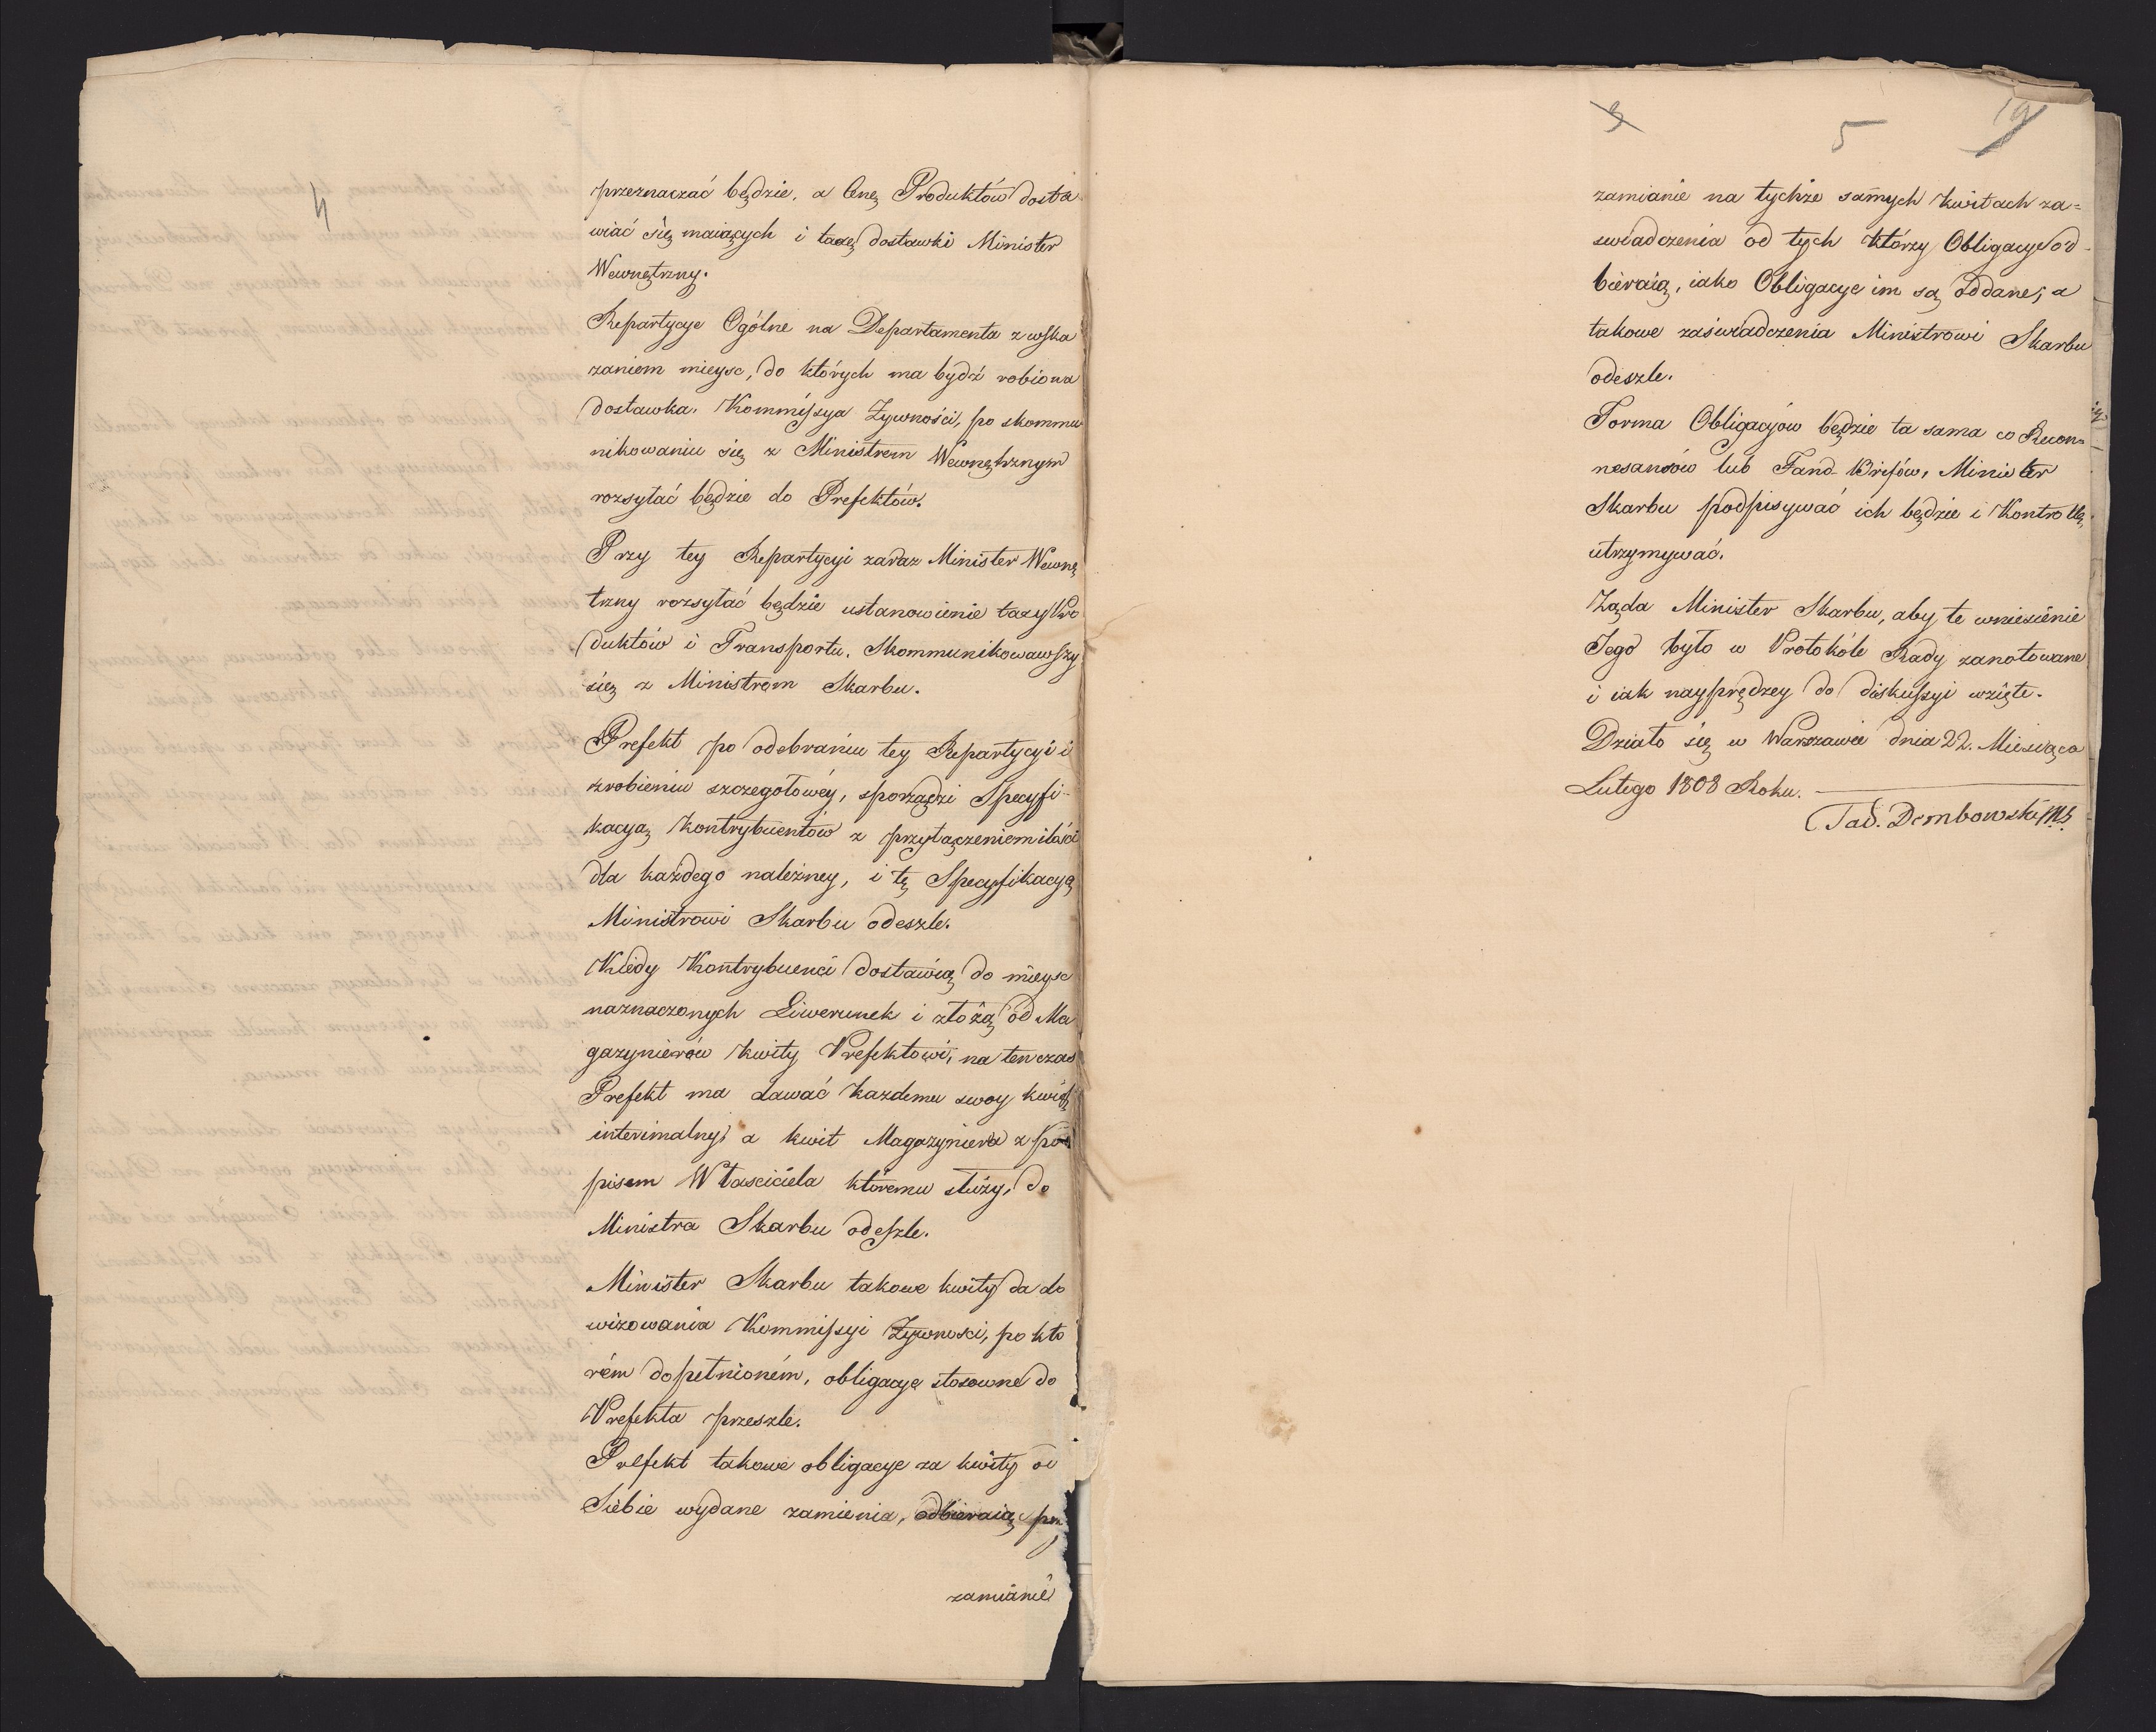 4
przeznaczać będzie. a Cenę Produktów dosta
wiać się maiących i taxę dostawki Minister
Wewnętrzny.
Repartycye Ogólne na Departamenta z wska
zaniem mieysc, do których ma bydź robiona
dostawka. Kommissya Żywności, po skommu
nikowaniu się z Ministrem Wewnętrznym
rozsyłać będzie do Prefektów.
Przy tey Repartycyi zaraz Minister Wewnę
trzny rozsyłać będzie ustanowienie taxy Pro
duktów i Transportu. Skommunikowawszy
się z Ministrem Skarbu.
Prefekt po odebraniu tey Repartycyi i
zrobieniu szczegołowéy, sporządzi Specyfi-
kacyą Kontrybuentów z przyłączeniem ilości
dla każdego należney, i tę Specyfikacyą
Ministrowi Skarbu odeszle.
Kiedy Kontrybuenci dostawią do mieysc
naznaczonych Liwerunek i złożą od Ma
gazynierów Kwity Prefektowi, na ten czas
Prefekt ma dawać Kazdemu swoy kwit
interimalny, a kwit Magazyniera z pod
pisem Własciciela któremu służy, do
Ministra Skarbu odeszle.
Minister Skarbu takowe kwity da do
wizowania Kommissyi Żywnosci, po któ
rém dopełnioném, obligacye stosowne do
Prefekta przeszle.
Prefekt takowe obligacye za kwity od
Siebie wydane zamienia, odbieraiąc przy
zamianie
3
5
19
zamianie na tychże samych Kwitach za=
swiadczenia od tych którzy Obligacye od-
bieraią, iako Obligacye im są oddane, a
takowe zaświadczenia Ministrowi Skarbu
odeszle.
Forma Obligacyów będzie ta sama co Recon=
nesansów lub Fand-Brifów, Minister
Skarbu podpisywać ich będzie i Kontrollę
utrzymywać.
Żąda Minister Skarbu, aby te wniesienie
Jego było w Protokóle Rady zanotowane
i iak nayprędzey do diskussyi wzięte.
Działo się w Warszawie dnia 22. Miesiąca
Lutego 1808 Roku.
Tad. Dembowski MS.